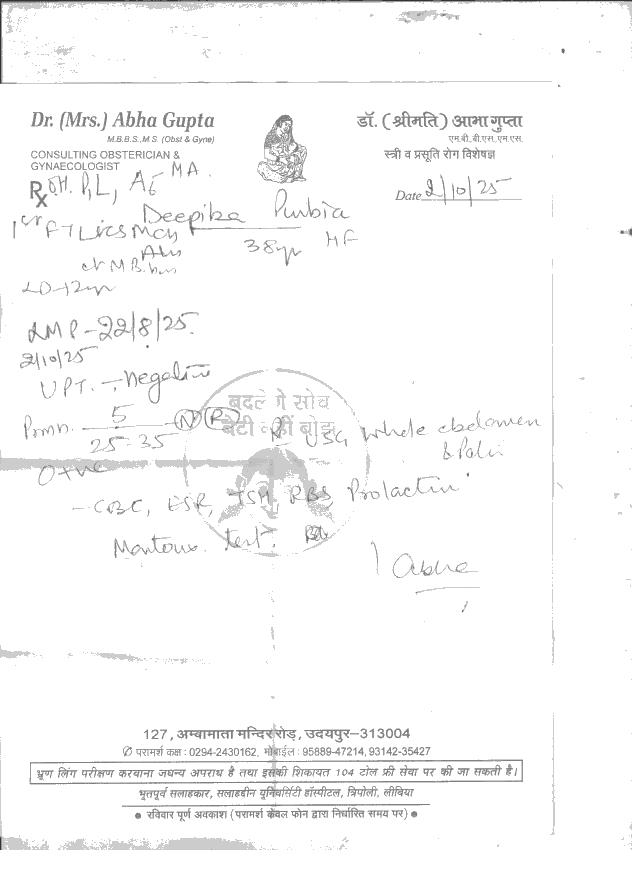 Dr. (Mrs.) Abha Gupta
M.B.B.S., M.S. (Obst & Gyne)
CONSULTING OBSTERICIAN &
GYNAECOLOGIST
डॉ. (श्रीमति) आभा गुप्ता
एम.बी.बी.एस. एम.एस.
स्त्री व प्रसूति रोग विशेषज्ञ
Date 2/10/25
Rx O.H. P1 L1 A6 MA.
Deepika Purbia
38yr HF
1st FT
LD-12yr
LMP-22/8/25.
2/10/25
UPT. - Negative
5
25-35
बदलेंगे सोच
बेटी नहीं बोझ
USG whole abdomen
& Pelvis
O+ve
- CBC, ESR, TSH, RBS, Prolactin
Mantoux test.
Abha
127, अम्बामाता मन्दिर रोड़, उदयपुर-313004
✆ परामर्श कक्ष : 0294-2430162, मोबाईल : 95889-47214, 93142-35427
भ्रूण लिंग परीक्षण करवाना जघन्य अपराध है तथा इसकी शिकायत 104 टोल फ्री सेवा पर की जा सकती है।
भूतपूर्व सलाहकार, सलाहद्दीन यूनिवर्सिटी हॉस्पीटल, त्रिपोली, लीबिया
● रविवार पूर्ण अवकाश (परामर्श केवल फोन द्वारा निर्धारित समय पर) ●